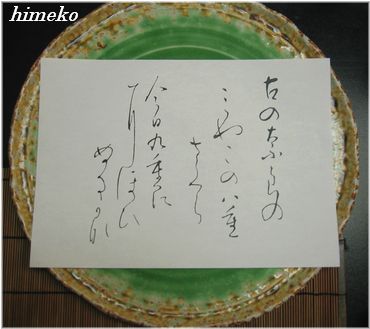 himeko
古の奈らの
みやこの八重
さくら
今日九重に
にほひ
ぬるかな